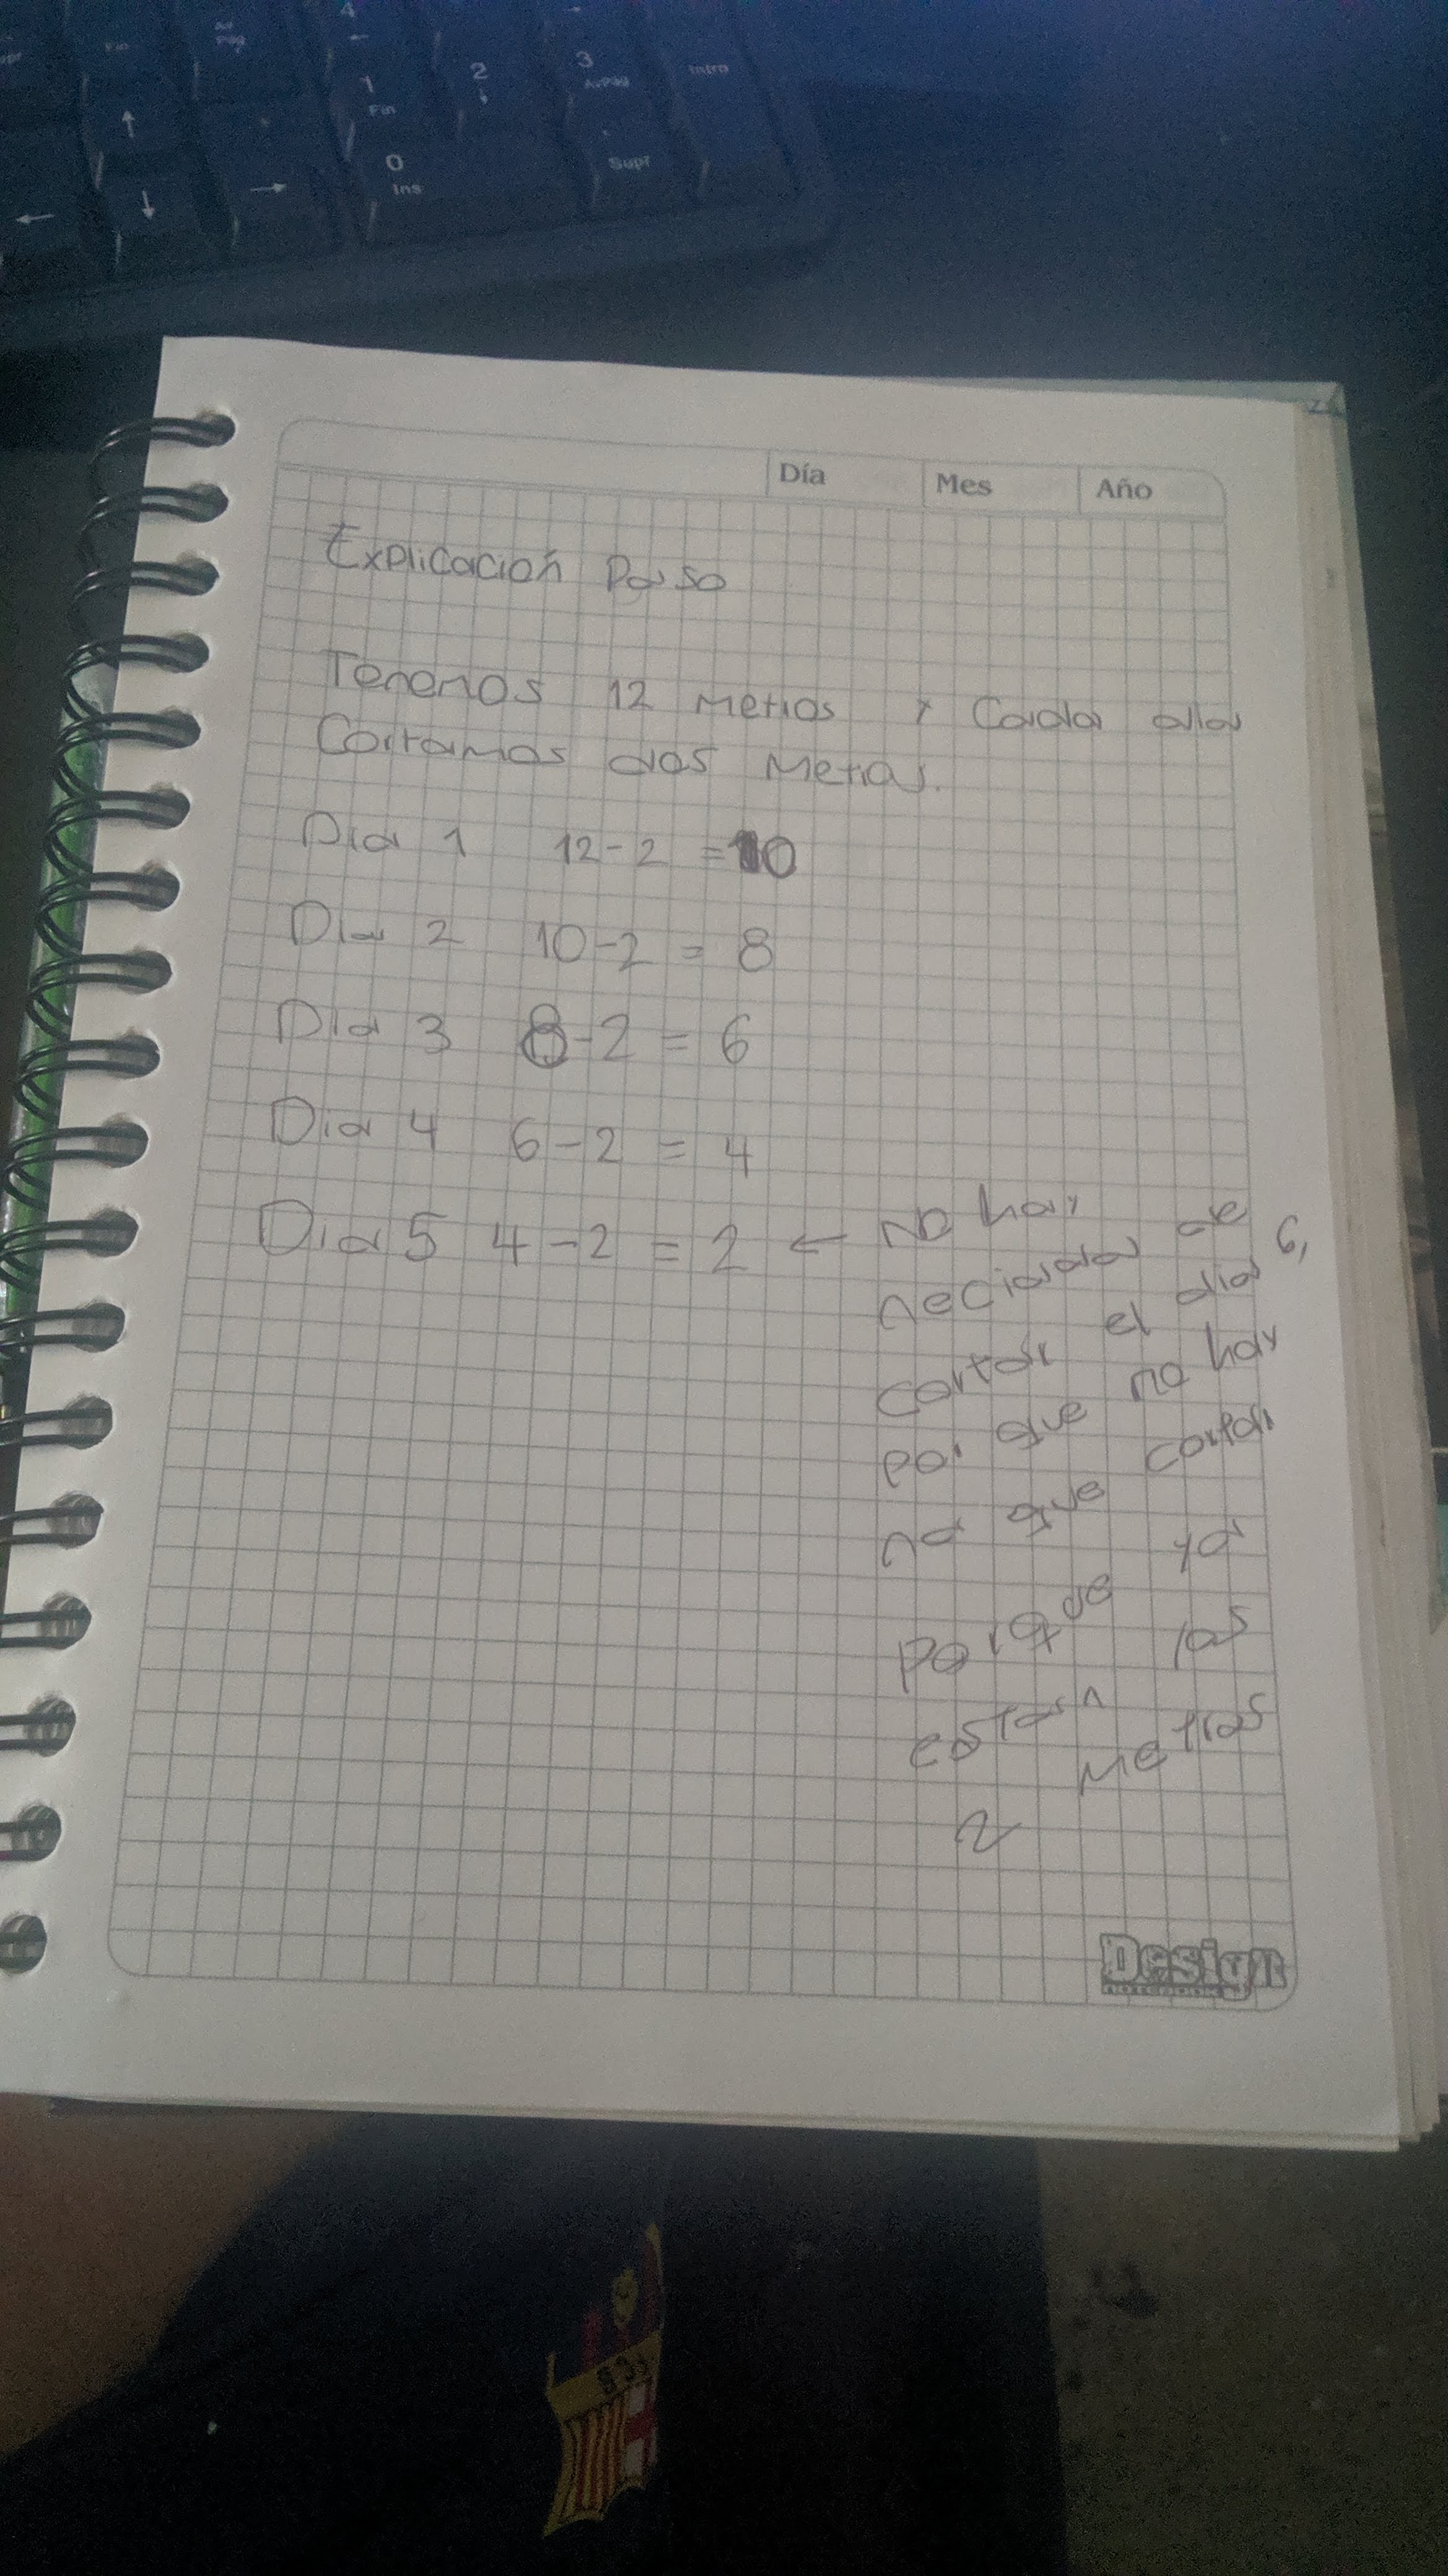 4
←
1
Fin
2
↓
3
AvPág
Intro
↑
0
Ins
Supr
←
↓
→
Día Mes Año
Explicación Paso
Tenemos 12 metros y Cada dia
Cortamos dos metros.
Dia 1 12-2 = 10
Dia 2 10-2 = 8
Dia 3 8-2 = 6
Dia 4 6-2 = 4
Dia 5 4-2 = 2 ← No hay
de
cortar el dia 6,
por que no hay
na que cortar
porque ya
estan los
2 metros
Design
NOTEBOOK
FCB